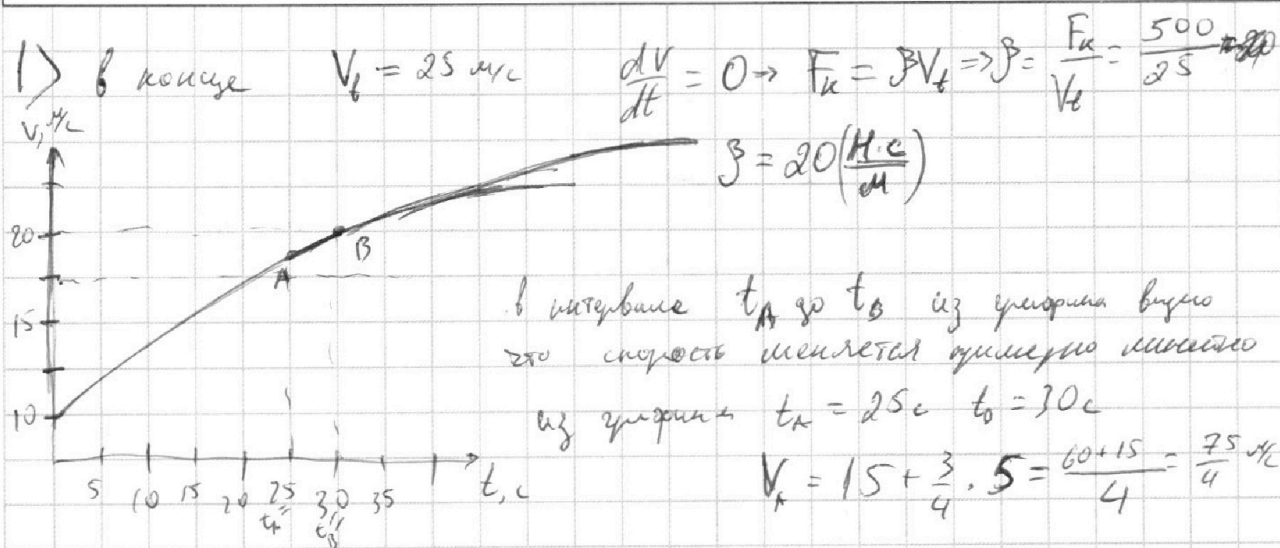 1) в конце V_t = 25 м/с dV/dt = 0 → F_к = βV_t => β = F_к/V_t = 500/25
V, м/с
β = 20 (Н·с/м)
20
15
10
A
B
5 10 15 20 25 30 35 t, с
t_A" t_B"
в интервале t_A до t_B из графика видно
что скорость меняется примерно линейно
из графика t_A = 25с t_B = 30с
V_A = 15 + 3/4 · 5 = (60+15)/4 = 75/4 м/с